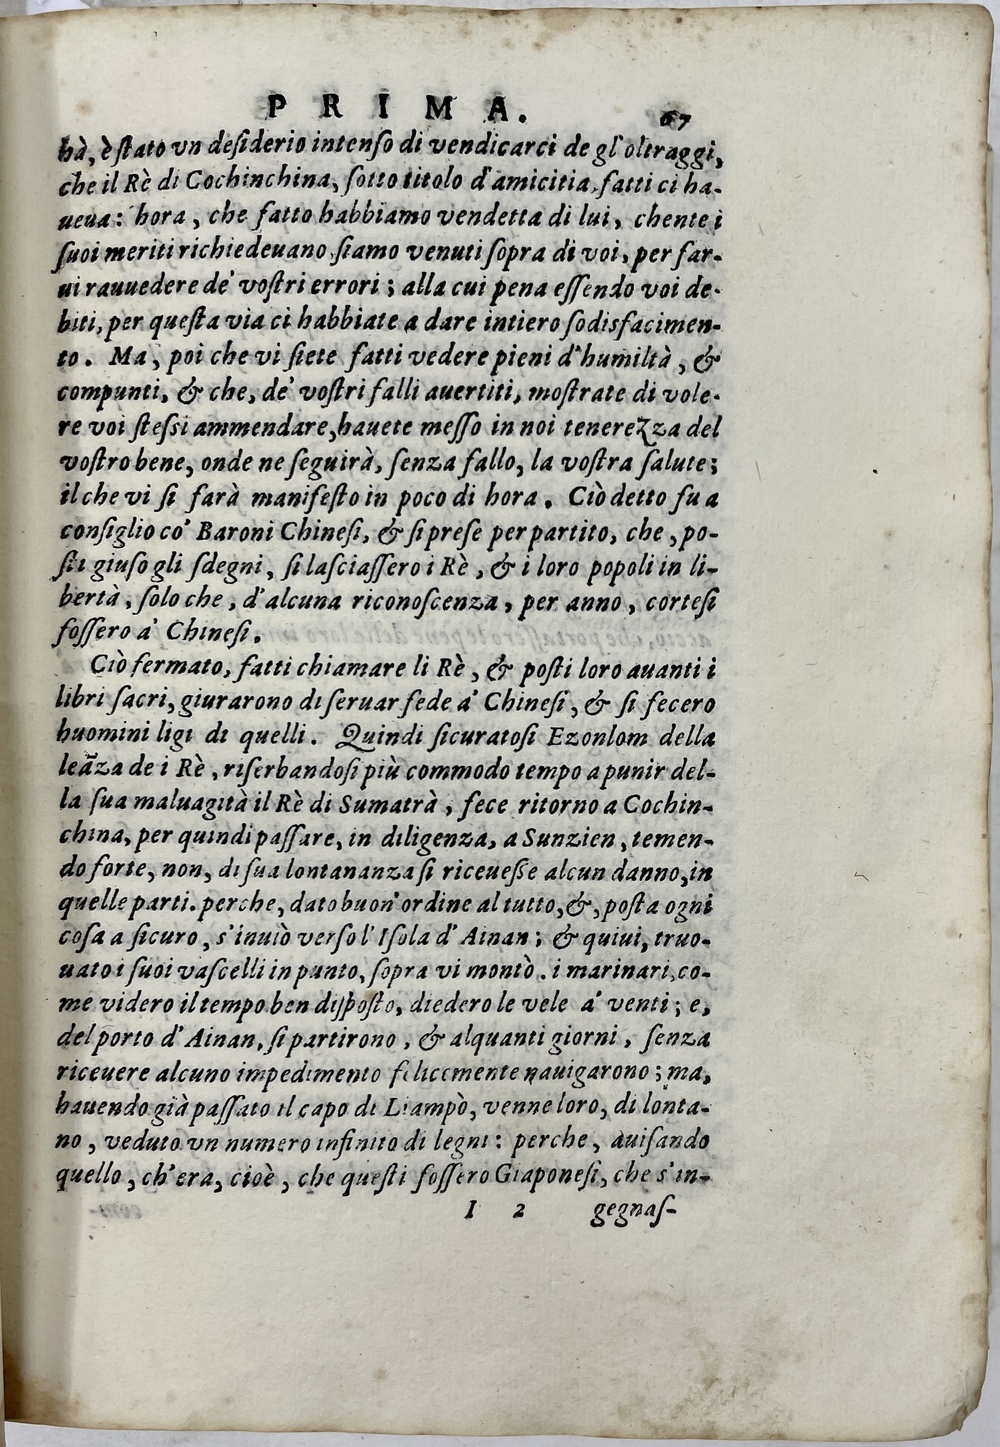 PRIMA. 67
hà, è ſtato vn deſiderio intenſo di vendicarci de gl'oltraggi,
che il Rè di Cochinchina, ſotto titolo d'amicitia, fatti ci ha-
ueua: hora, che fatto habbiamo vendetta di lui, chente i
ſuoi meriti richiedeuano, ſiamo venuti ſopra di voi, per far-
ui rauuedere de' voſtri errori; alla cui pena eſſendo voi de-
biti, per queſta via ci habbiate a dare intiero ſodisfacimen-
to. Ma, poi che vi ſiete fatti vedere pieni d'humiltà, &
compunti, & che, de' voſtri falli auertiti, moſtrate di vole-
re voi ſteſsi ammendare, hauete meſſo in noi tenerezza del
voſtro bene, onde ne ſeguirà, ſenza fallo, la voſtra ſalute;
il che vi ſi farà manifeſto in poco di hora. Ciò detto fu a
conſiglio co' Baroni Chineſi, & ſi preſe per partito, che, po-
ſti giuſo gli ſdegni, ſi laſciaſſero i Rè, & i loro popoli in li-
bertà, ſolo che, d'alcuna riconoſcenza, per anno, corteſi
foſſero a' Chineſi.
Ciò fermato, fatti chiamare li Rè, & poſti loro auanti i
libri ſacri, giurarono di ſeruar fede a' Chineſi, & ſi fecero
huomini ligi di quelli. Quindi ſicuratoſi Ezonlom della
leāza de i Rè, riſerbandoſi più commodo tempo a punir del-
la ſua maluagità il Rè di Sumatrà, fece ritorno a Cochin-
china, per quindi paſſare, in diligenza, a Sunzien, temen-
do forte, non, di ſua lontananza ſi riceueſſe alcun danno, in
quelle parti. perche, dato buon'ordine al tutto, &, poſta ogni
coſa a ſicuro, s'inuiò verſo l'Iſola d'Ainan; & quiui, truo-
uato i ſuoi vaſcelli in punto, ſopra vi montò. i marinari, co-
me videro il tempo ben diſpoſto, diedero le vele a' venti; e,
del porto d'Ainan, ſi partirono, & alquanti giorni, ſenza
riceuere alcuno impedimento felicemente nauigarono; ma,
hauendo già paſſato il capo di Liampò, venne loro, di lonta-
no, veduto vn numero infinito di legni: perche, auiſando
quello, ch'era, cioè, che queſti foſſero Giaponeſi, che s'in-
I 2 gegnaſ-